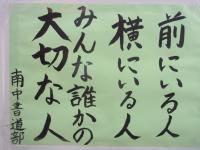 前にいる人
横にいる人
みんな誰かの
大切な人
南中書道部